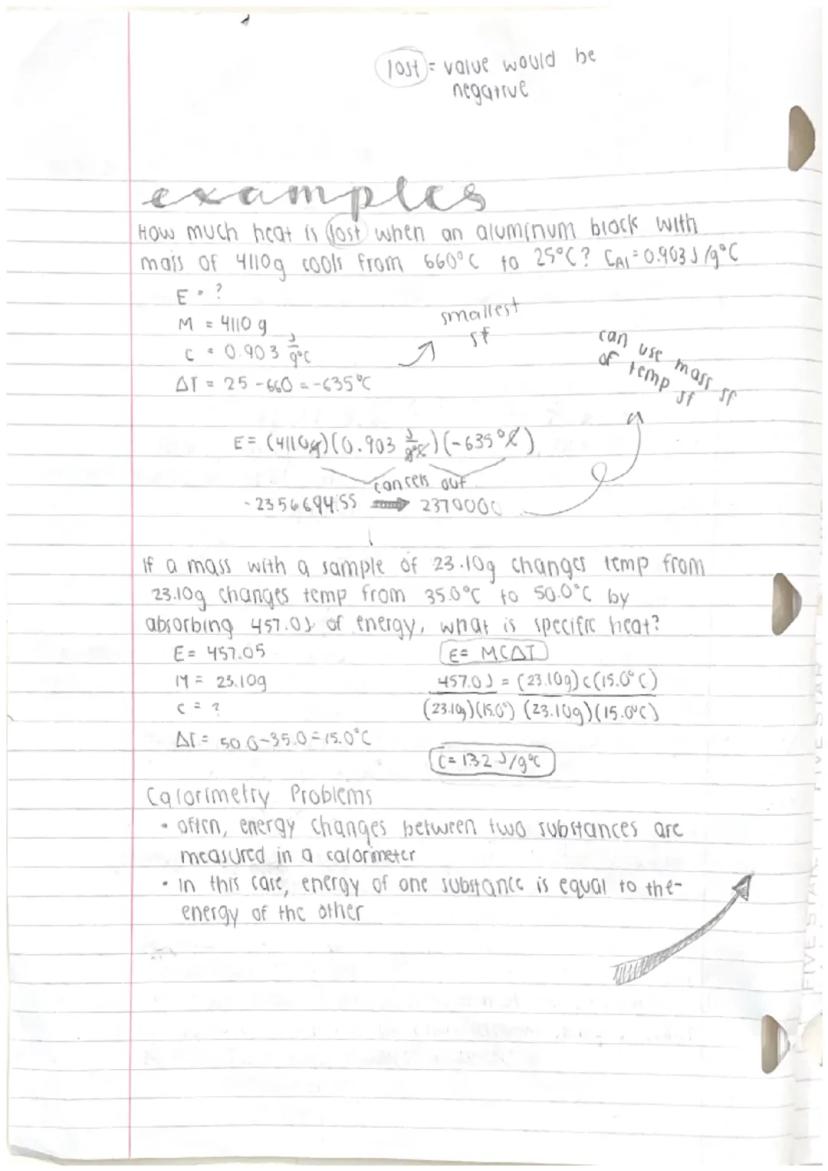 lost = value would be
negative
examples
How much heat is lost when an aluminum block with
mass of 4110g cools from 660°C to 25°C? CAl = 0.903 J/g°C
E = ?
M = 4110 g
C = 0.903 J/g°C
ΔT = 25 - 660 = -635°C
smallest
sf
can use mass sf
of temp sf
E = (4110g)(0.903 J/g°C)(-635°C)
cancels out
-2356694.55 ⟹ 2370000
If a mass with a sample of 23.10g changes temp from
23.10g changes temp from 35.0°C to 50.0°C by
absorbing 457.0J of energy, what is specific heat?
E = 457.05
M = 23.10g
C = ?
ΔT = 50.0-35.0 = 15.0°C
E = MCΔT
457.0J = (23.10g)c(15.0°C)
(23.10g)(15.0°) (23.10g)(15.0°C)
C = 132 J/g°C
Calorimetry Problems
• often, energy changes between two substances are
measured in a calorimeter
• in this case, energy of one substance is equal to the
energy of the other
FIVE STAR